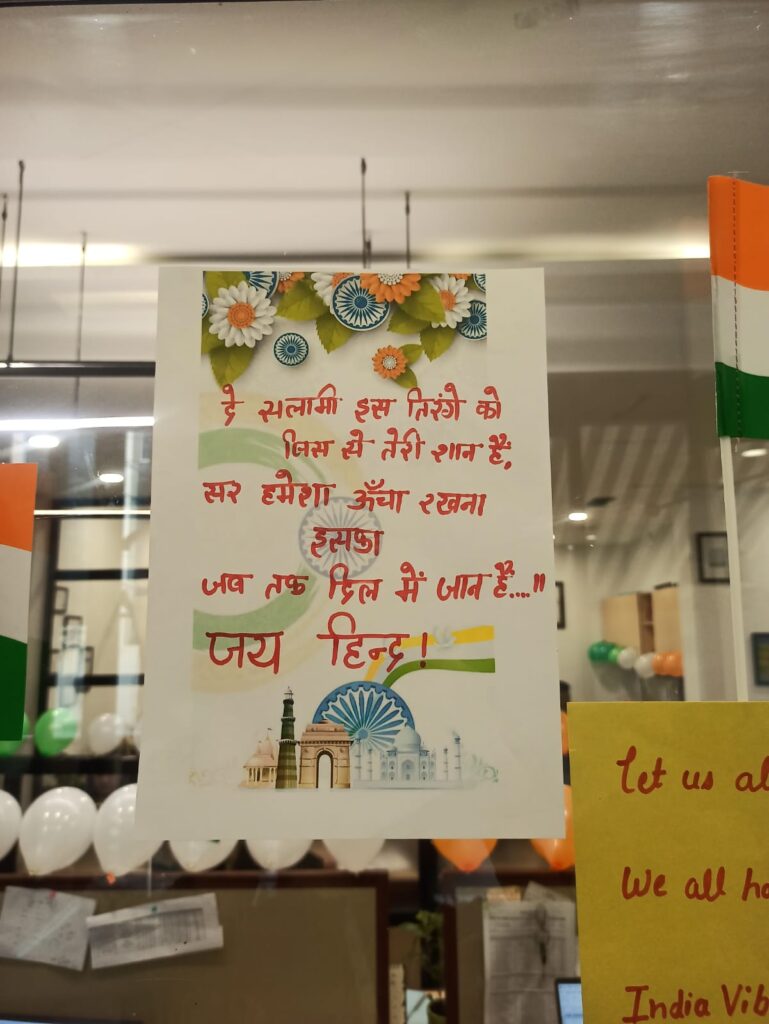 दे सलामी इस तिरंगे को
जिस से तेरी शान हैं,
सर हमेशा ऊँचा रखना
इसका
जब तक दिल में जान हैं....॥
जय हिन्द्र!
let us al
We all ha
India Vib